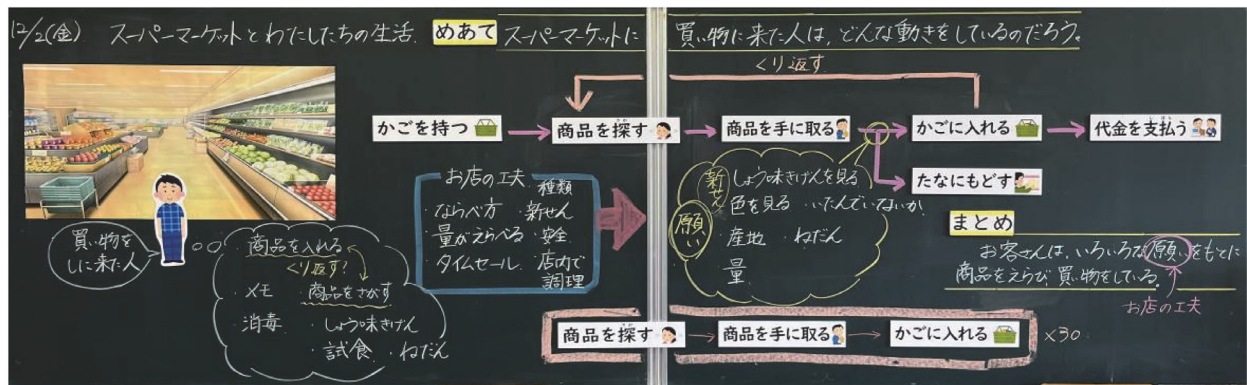 12/2(金) スーパーマーケットとわたしたちの生活
めあて スーパーマーケットに買い物に来た人は、どんな動きをしているのだろう。
くり返す
かごを持つ
商品を探す
商品を手に取る
かごに入れる
代金を支払う
たなにもどす
買い物を
しに来た人
商品を入れる
くり返す?
・メモ ・商品をさがす
・消毒 ・しょう味きげん
・試食 ・ねだん
お店の工夫
・ならべ方
・量がえらべる
・タイムセール
・種類
・新せん
・安全
・店内で
調理
願い
新せん
しょう味きげんを見る
色を見る ・いたんでいないか
・産地 ・ねだん
・量
まとめ
お客さんは、いろいろな願いをもとに
商品をえらび、買い物をしている。
お店の工夫
商品を探す
商品を手に取る
かごに入れる
×30